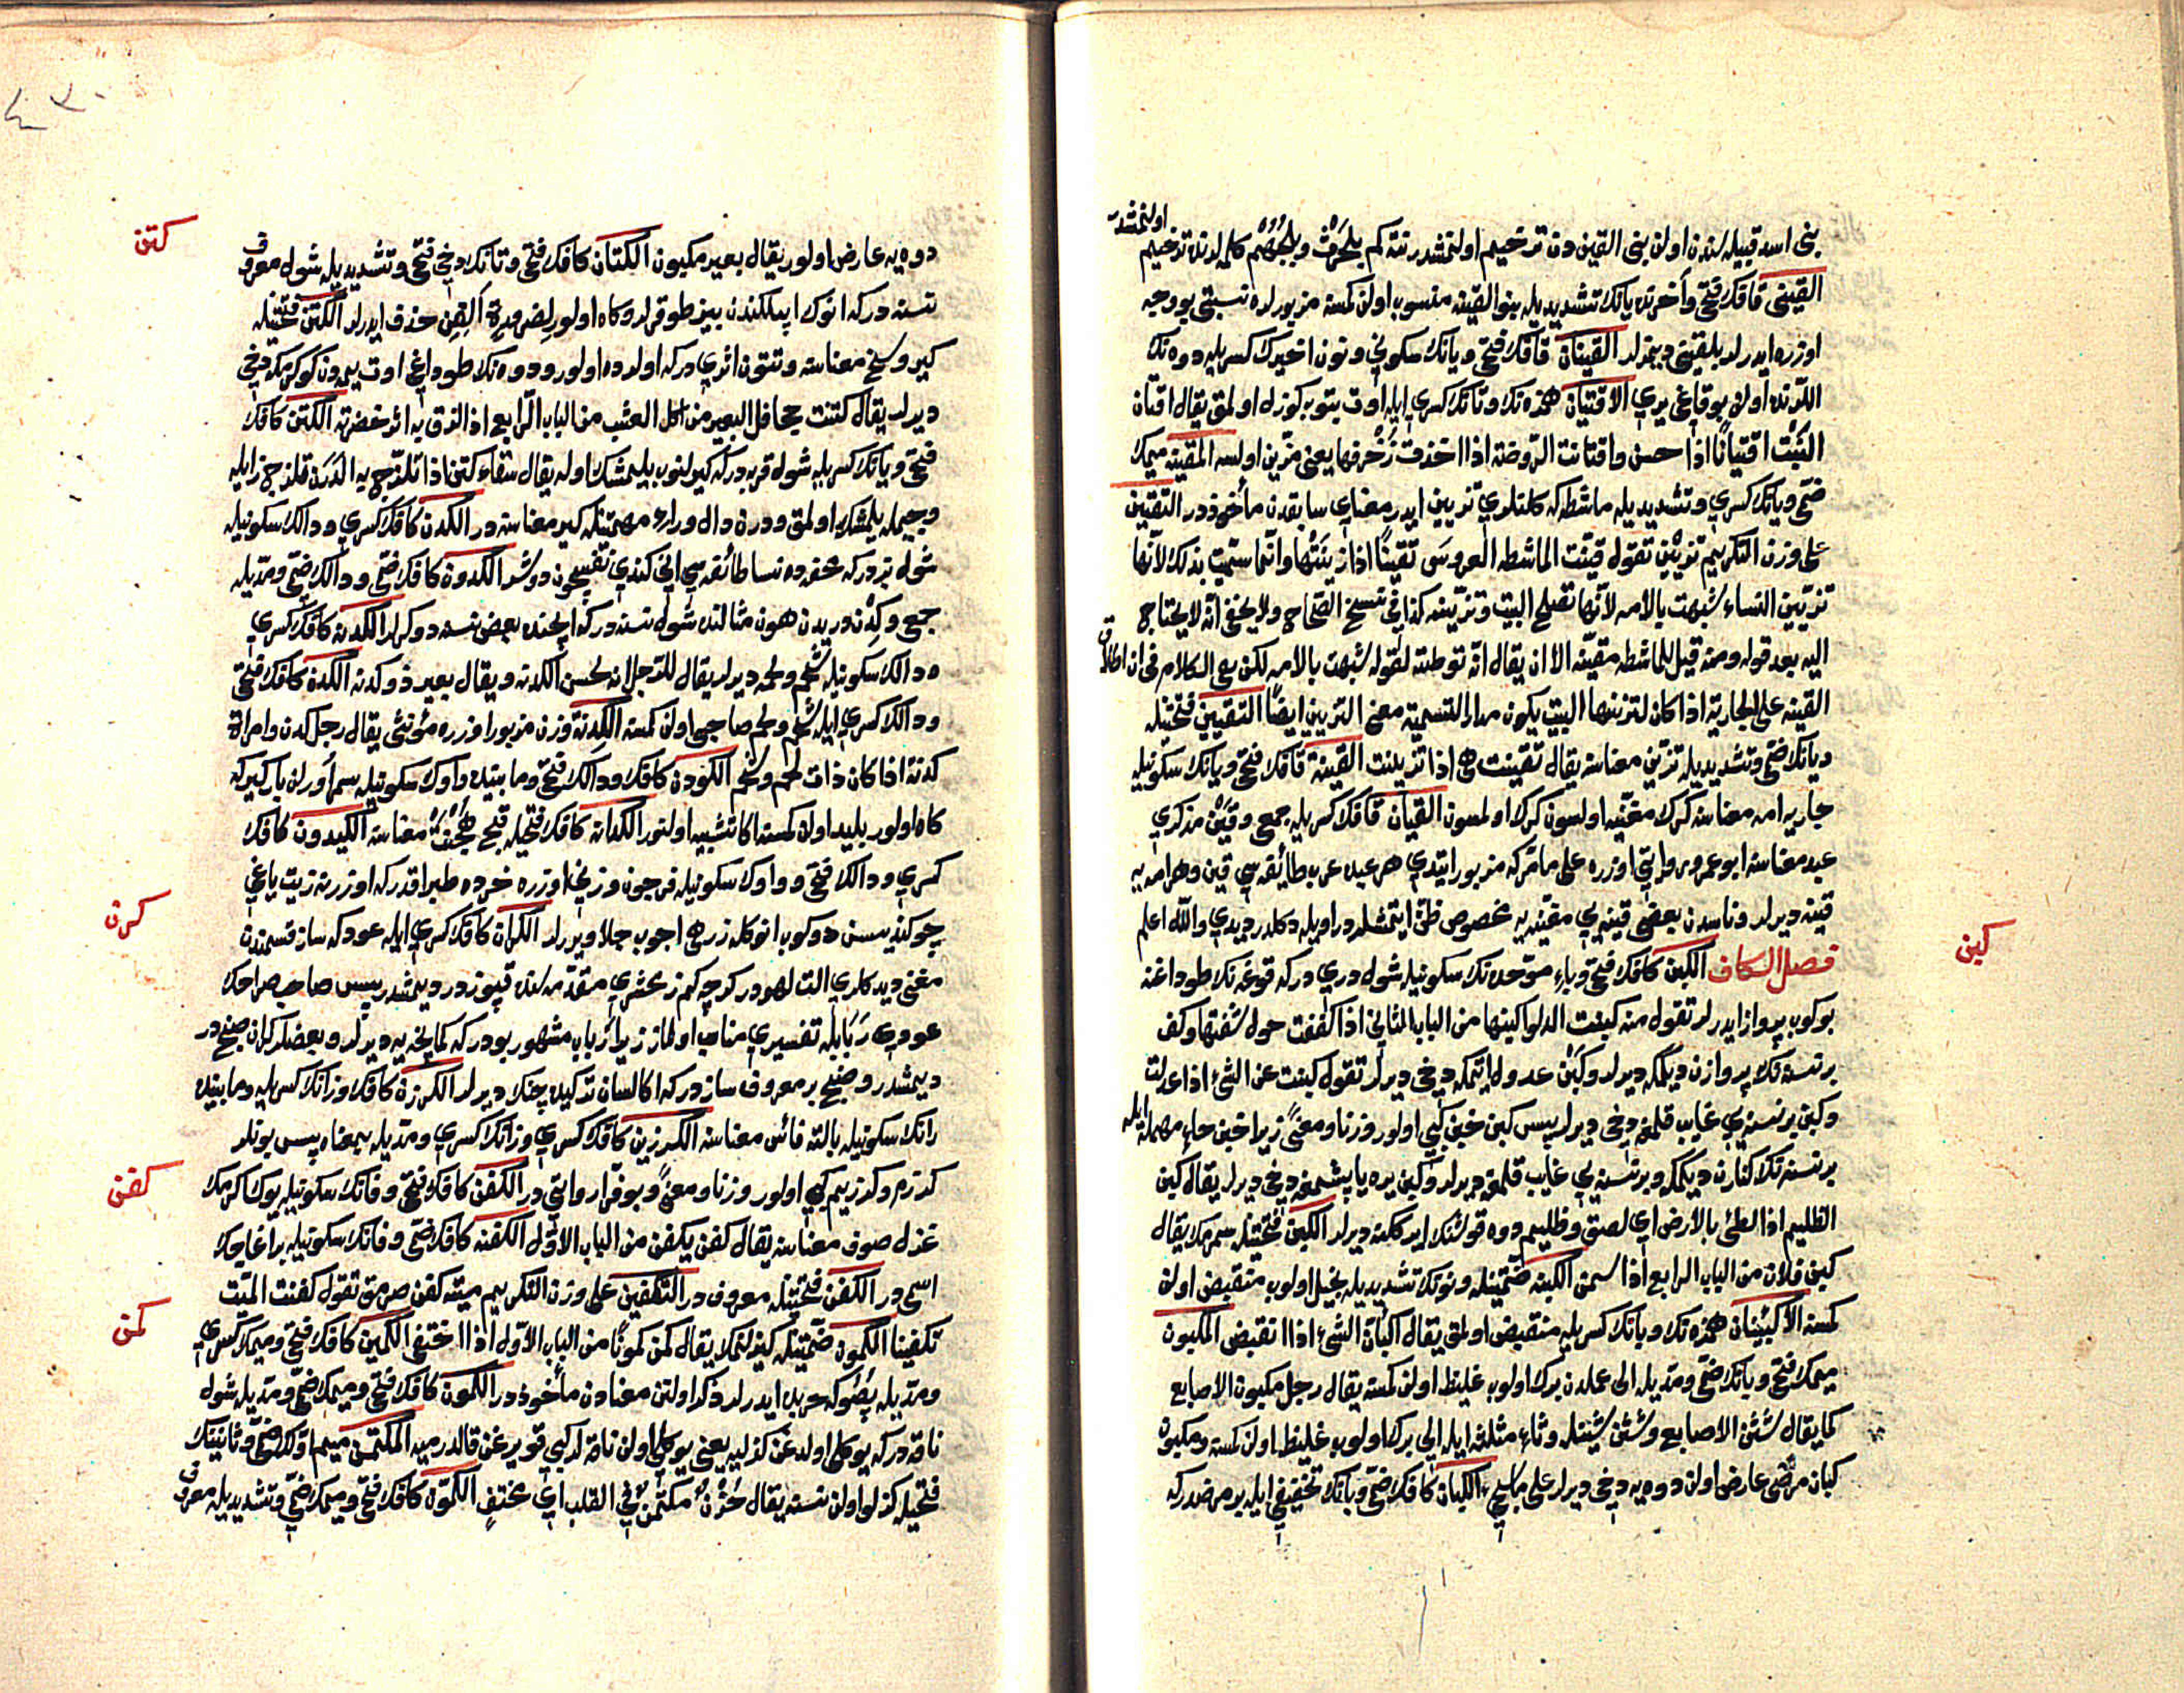 اولنمشدر
بنى اسد قبيله سندن اولان بنى القين دن ترخيم اولنمشدر نته كم بلحرث وبلجهم كلمه لرنده ترخيم
القينى قافك فتحى وآخرنده يانك تشديديله بنو القينه منسوب اولان كمسه مزبورلره نسبتى بو وجه
اوزره ايدرلر بلقينى ديمزلر القينان قافك فتحى ويانك سكونى ونون اخيرك كسريله دوه نك
اللرنده اولان بوقاغى يرى الاقتيان همزه نك وتانك كسرى ايله اوت بتوب كوزل اولمق يقال اقتان
النبت اقتيانا اذا حسن واقتانت الروضة اذا اخذت زخرفها يعنى مزين اولسه المقينه ميمك
ضمى ويانك كسرى وتشديديله ماشطه كه كلنلرى تزيين ايدر معناى سابقدن مأخوذدر التقيين
على وزن التكريم تزيين تقول قينت الماشطه العروس تقيينا اذا زينتها وانما سميت بذلك لانها
تزيين النساء شبهت بالامه لانها تصلح البيت وتزينه كذا فى نسخ الصحاح ولا يخفى انه لا يحتاج
اليه بعد قوله ومنه قيل للماشطه مقينه الا ان يقال انه توطئه لقوله شبهت بالامه لكن بقى الكلام فى ان اطلاق
القينه على الجارية اذا كان لتزينها البيت يكون مدار التسمية معنى التزيين ايضا التقين فتحتيله
ويانك ضمى وتشديديله تزين معناسنه يقال تقينت هى اذا تزينت القينة قافك فتحى ويانك سكونيله
جاريه امه معناسنه كرك مغنيه اولسون كرك اولمسون القيان قافك كسريله جمعى وقين مذكرى
عبد معناسنه ابو عمرو روايتى اوزره على ما مر كه مزبور ايتدى هر عبده عرب طائفه سى قين وهر امه يه
قينه ديرلر وناسدن بعضى قينه يى مغنيه يه مخصوص ظن ايتمشلردر اويله دكلدر ديدى والله اعلم
كبن
فصل الكاف الكبن كافك فتحى وباء موحده نك سكونيله شول درى دركه قوغه نك طوداغنه
بوكوب پرواز ايدرلر تقول منه كبنت الدلو اكبنها من الباب الثانى اذا كففت حول شفتها وكف
برنسنه نك پروازن ديكمكه ديرلر وكبن عدول ايتمكه دخى ديرلر تقول كبنت عن الشئ اذا عدلت
وكبن برنسنه يى غايب قلمغه دخى ديرلر پس كبن خبن كبى اولور وزنا ومعنى زيرا خبن حاء مهمله ايله
برنسنه نك كنارن ديكمكه وبرنسنه يى غايب قلمغه ديرلر وكبن يره ياپشمغه دخى ديرلر يقال كبن
الظليم اذا لطئ بالارض اى لصق وظليم دوه قوشنك ايرككنه ديرلر الكبن فتحتيله سمرمك يقال
كبن فلان من الباب الرابع اذا سمن الكبنه ضمتيله ونونك تشديديله بخيل اولوب منقبض اولان
كمسه الاكبئنان همزه نك وبانك كسريله منقبض اولمق يقال اكبأن الشئ اذا انقبض المكبون
ميمك فتحى وبانك ضمى ومديله الى عملدن برك اولوب غليظ اولان كمسه يقال رجل مكبون الاصابع
كما يقال شثن الاصابع وشثن شينله وثاء مثلثه ايله الى برك اولوب غليظ اولان كمسه ومكبون
كبان مرضى عارض اولان دوه يه دخى ديرلر على ما سيجئ الكبان كافك ضمى وبانك تخفيفى ايله بر مرضدر كه
كتن
دوه يه عارض اولور يقال بعير مكبون الكتان كافك فتحى وتانك دخى فتحى وتشديديله شول معروف
نسنه دركه انوك ايپلكندن بيز طوقرلر وكاه اولور لضرورة الفن حذف ايدرلر الكتن فتحتيله
كير وسخ معناسنه وتتون اثرى دركه اولرده اولور ودوه نك طوداغى اوت يمدن كوكرمكه دخى
ديرلر يقال كتنت جحافل البعير من اكل العشب من الباب الرابع اذا لزق به اثر خضرته الكتن كافك
فتحى ويانك كسريله شول قربه دركه كيرلنوب يلمشك اوله يقال سقاء كتن اذا تلزج به الدرن تلزج زا ايله
وجيمله يلمشك اولمق ودرن دال وراء مهملتيله كير معناسنه در الكدن كافك كسرى ودالك سكونيله
شول بزدركه محفه ده نسا طائفه سى انى كندى نفسيچون دوشر الكدون كافك ضمى ودالك ضمى ومديله
جمعى وكدن دريدن هون مثالنده شول نسنه دركه ايچنده بعض نسنه دوكرلر الكدنه كافك كسرى
ودالك سكونيله شحم ولحمه ديرلر يقال للرجل انه لحسن الكدنه ويقال بعير ذو كدنه الكدن كافك فتحى
ودالك كسرى ايله شحم ولحم صاحبى اولان كمسه الكدنة وزن مزبور اوزره مؤنثى يقال رجل كدن وامرأة
كدنة اذا كان ذات لحم وشحم الكودن كافك ودالك فتحى وما بينده واوك سكونيله سمر اورلن باركير كه
كاه اولور بليد اولان كمسه اكا تشبيه اولنور الكدانه كافك فتحيله قبح هجنت معناسنه الكديون كافك
كسرى ودالك فتحى وواوك سكونيله فرجون وزنى اوزره خرده طبراقدر كه اوزرنه زيت ياغى
كرن
چوكندسن دوكوب انوكله زرهى اچوب جلا ويررلر الكران كافك كسرى ايله عوددكه ساز قسمندن
مغنى ديدكلرى الت لهودر كرچه كم زمخشرى مقدمه سنده قپوزدر ديمشدر پس صاحب صراحك
عودى ربابله تفسيرى مناسب اولماز زيرا رباب مشهور بودركه كمانچه يه ديرلر وبعضلر كران صنجدر
ديمشدر وصنج بر معروف سازدركه اكا لسان تركيده چنك ديرلر الكرزن كافك وزانك كسريله وما بينده
رانك سكونيله بالته فأس معناسنه الكرزين كافك كسرى وزانك كسرى ومديله بمعناه پس بونلر
كفن
كرزم وكرزيم كبى اولور وزنا ومعنى وبو فرا روايتى در الكفن كافك فتحى وفانك سكونيله يوك اكرمك
غزل صوف معناسنه يقال كفن يكفن من الباب الاول الكفنه كافك ضمى وفانك سكونيله بر اغاجك
اسمى در الكفن فتحتيله معروف در التكفين على وزن التكريم ميته كفن صرمق تقول كفنت الميت
كمن
تكفينا الكمون ضمتيله كيزلنمك يقال كمن كمونا من الباب الاول اذا اختفى الكمين كافك فتحى وميمك كسرى
ومديله پصوكه حربده ايدرلر ذكر اولنن معنادن مأخوذدر الكمون كافك فتحى وميمك ضمى ومديله شول
ناقه دركه يوكلى اولدغن كزليه يعنى يوكلى اولان ناقه لر كبى قويروغن قالدرميه المكتمن ميم اولك ضمى وثانينك
فتحيله كزلو اولان نسنه يقال حزن مكتمن فى القلب اى مختف الكمون كافك فتحى وميمك ضمى وتشديديله معروف